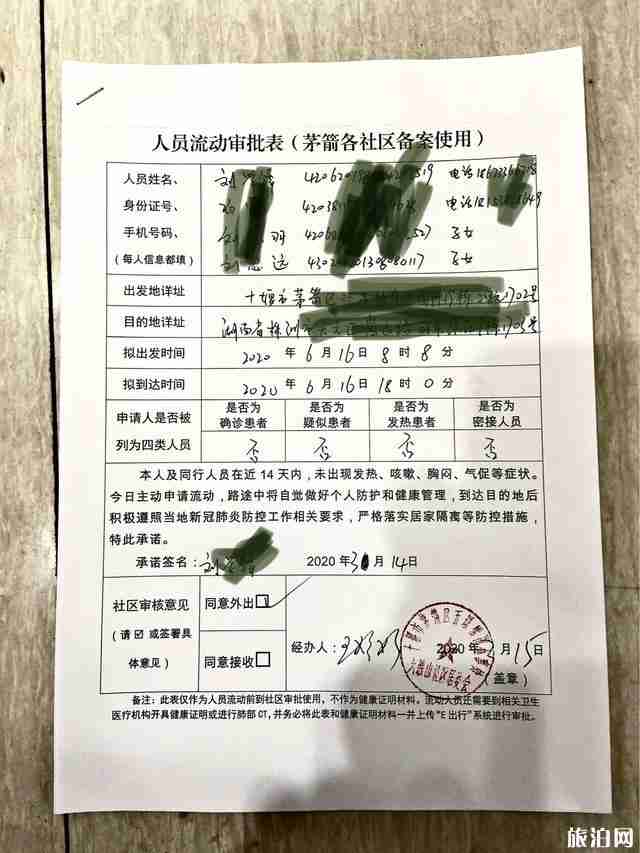 人员流动审批表（茅箭各社区备案使用）
人员姓名、
身份证号、
手机号码、
（每人信息都填）
刘
电话
电话
子女
刘 远 子女
出发地详址 十堰市茅箭区 1702号
目的地详址 湖南省株洲市
拟出发时间 2020 年 6 月 16 日 8 时 8 分
拟到达时间 2020 年 6 月 16 日 18 时 0 分
申请人是否被
列为四类人员
是否为
确诊患者
是否为
疑似患者
是否为
发热患者
是否为
密接人员
否 否 否 否
本人及同行人员在近14天内，未出现发热、咳嗽、胸闷、气促等症状。
今日主动申请流动，路途中将自觉做好个人防护和健康管理，到达目的地后
积极遵照当地新冠肺炎防控工作相关要求，严格落实居家隔离等防控措施，
特此承诺。
承诺签名：刘 2020 年 月 14 日
社区审核意见
（请 ☑ 或签署具
体意见）
同意外出☑
同意接收☐
经办人： 2020 年 月 15 日
（盖章）
备注：此表仅作为人员流动前到社区审批使用，不作为健康证明材料。流动人员还需要到相关卫生
医疗机构开具健康证明或进行肺部CT，并务必将此表和健康证明材料一并上传“E出行”系统进行审批。
旅泊网